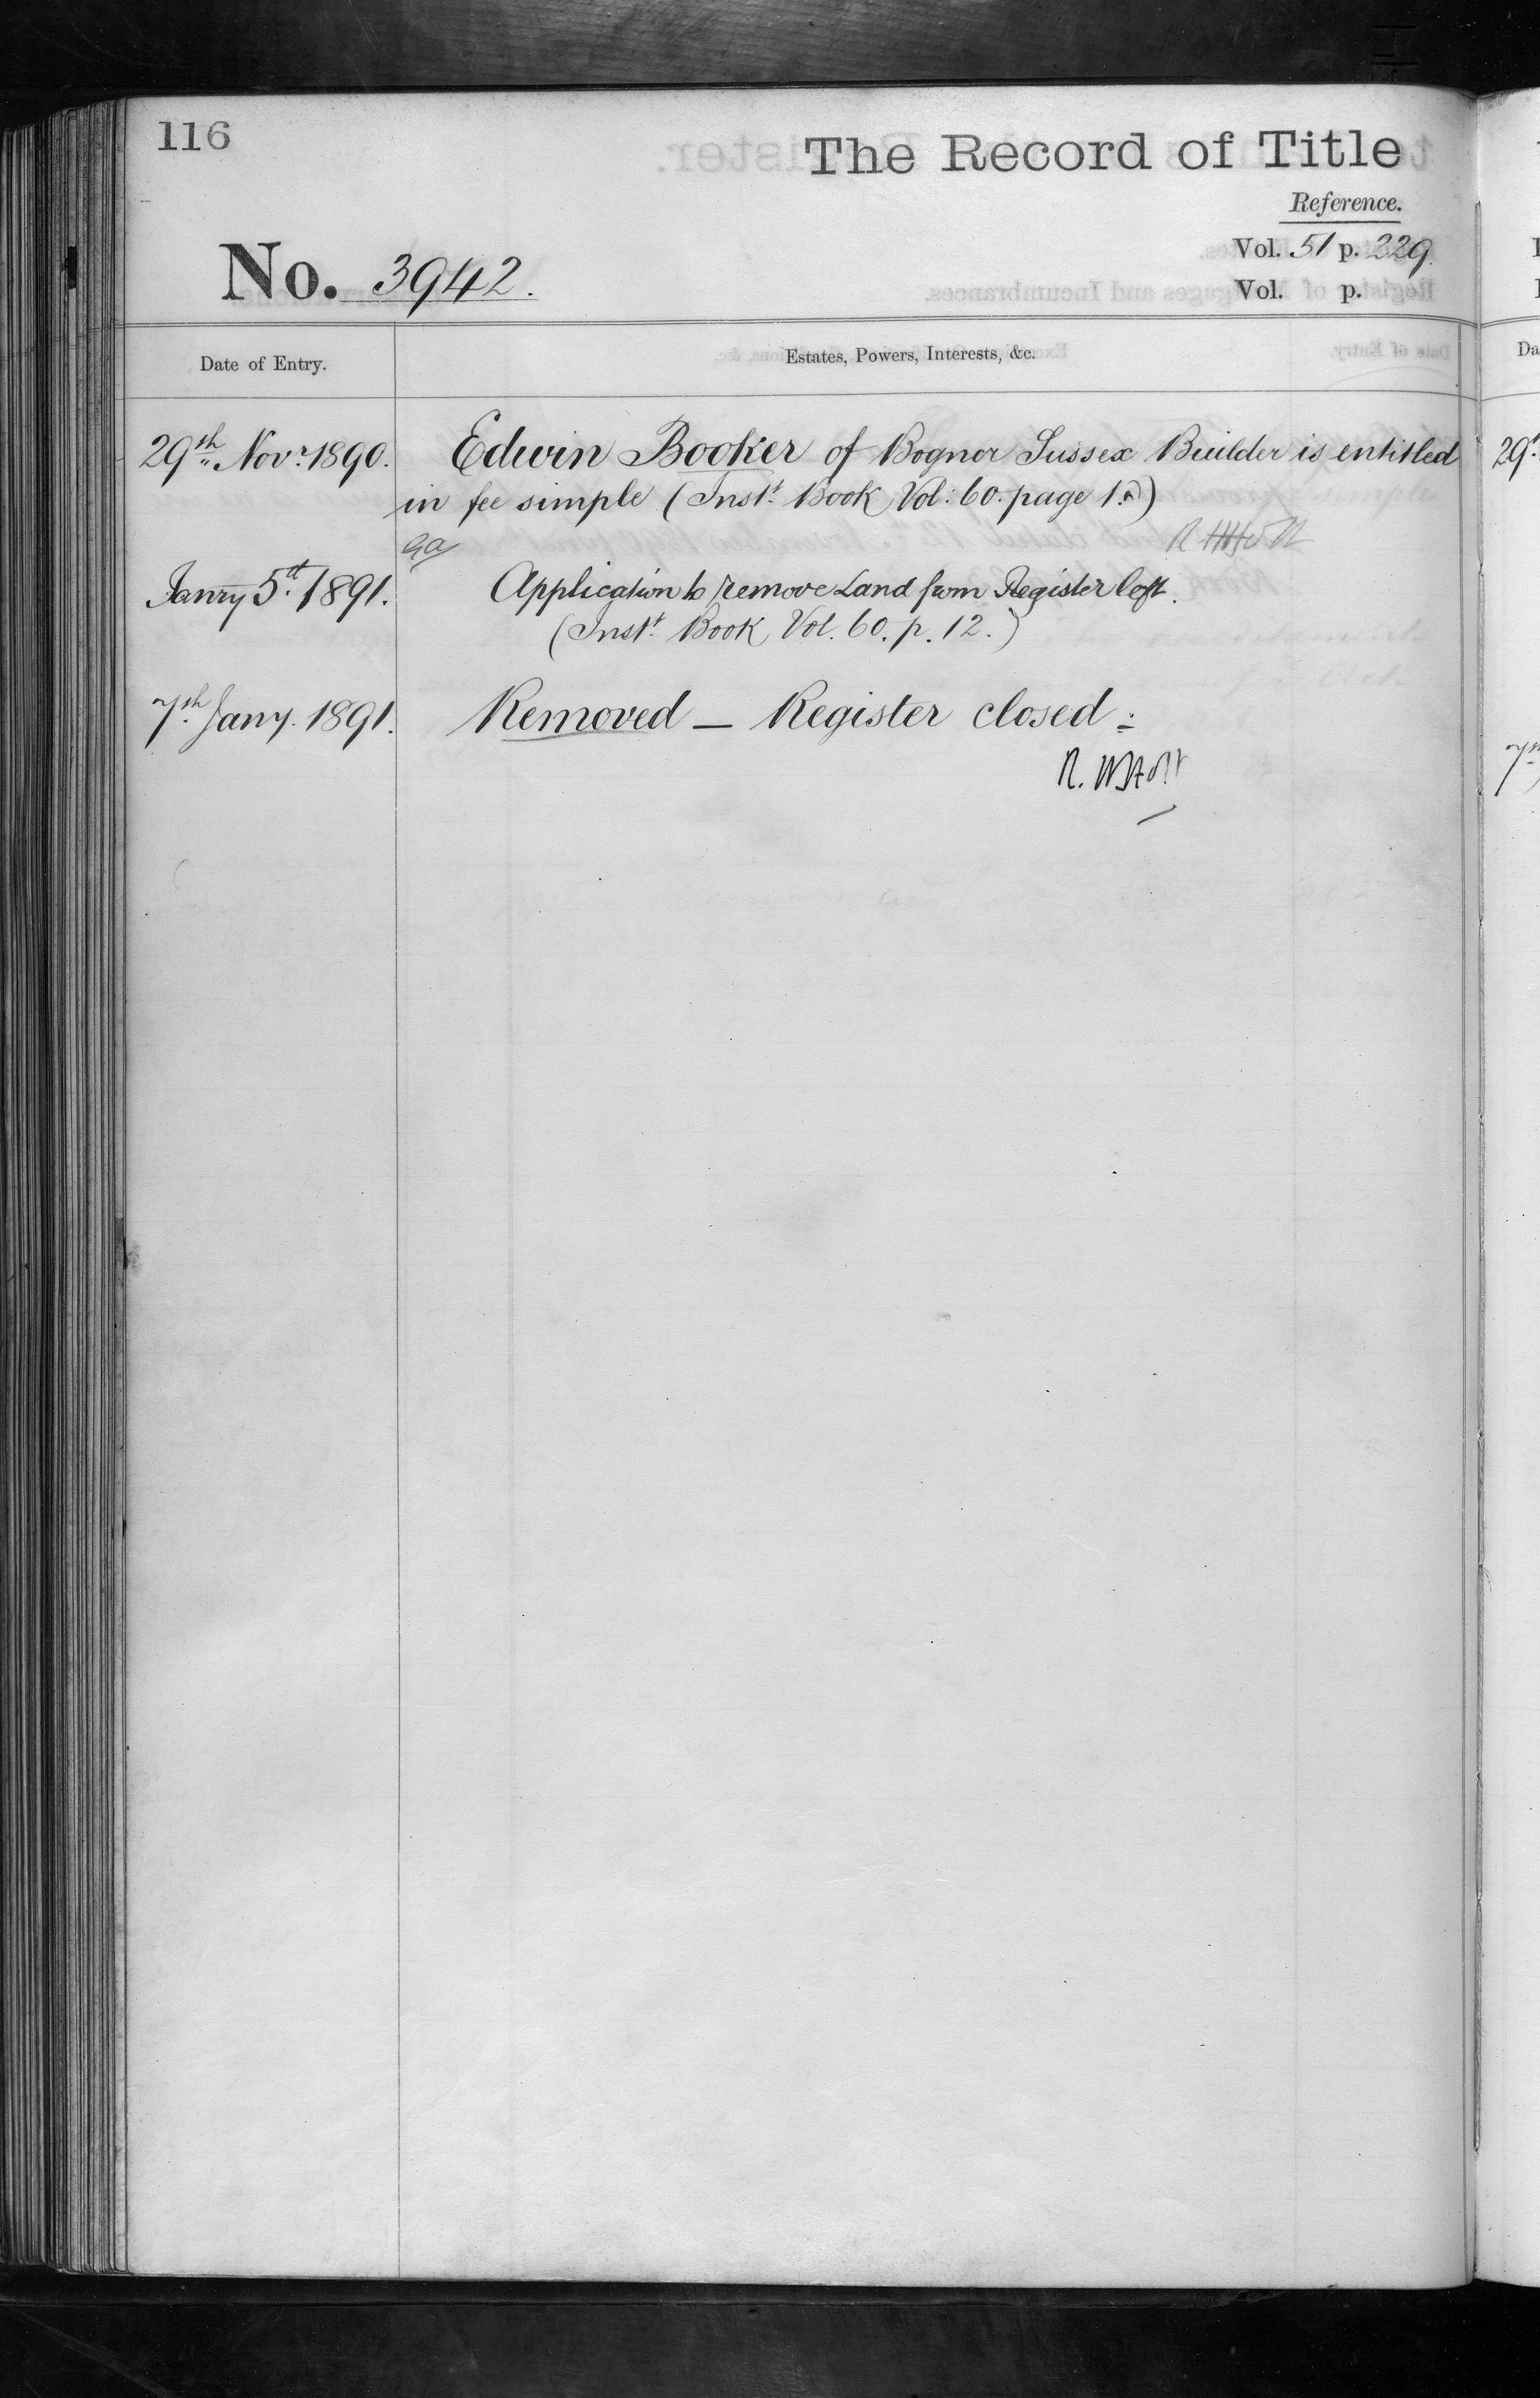 116
The Record of Title
Reference.
Vol. 51 p. 229.
No. 3942.
Vol. p.
Date of Entry.
Estates, Powers, Interests, &c.
29th Novr. 1890.
Edwin Booker of Bognor Sussex Builder is entitled
in fee simple (Instt. Book Vol: 60. page 1.)
Janry 5th. 1891.
Application to remove Land from Register left.
(Instt. Book Vol. 60. p. 12.)
7th. Jany. 1891.
Removed — Register closed